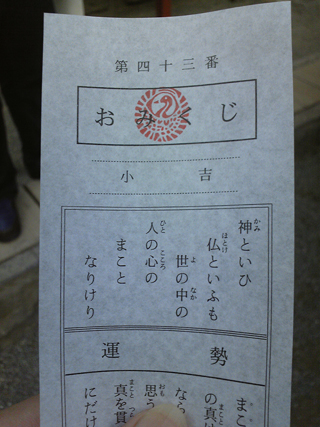 第四十三番
おみくじ
小吉
神といひ
仏といふも
世の中の
人の心の
まこと
なりけり
運勢
まこ
の真い
なら
思う
真を貫
にだけ